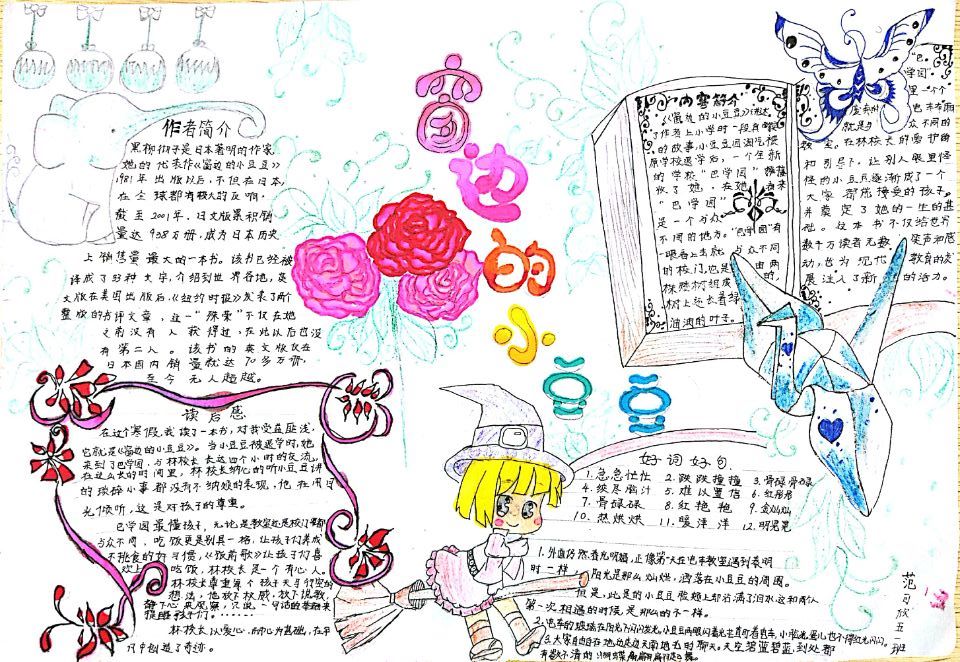 窗边的小豆豆
作者简介
黑柳彻子是日本著明的作家
她的代表作《窗边的小豆豆》
1981年出版以后,不但在日本,
在全球都有极大的反响,
截至2001年,日文版累积销
量达938万册,成为日本历史
上销售量最大的一本书。该书已经被
译成了33种文字,介绍到世界各地,英
文版在美国出版后,《纽约时报》发表了两
整版的书评文章,这一“殊荣”不仅在她
之前没有人获得过,在此以后也没
有第二人。该书的英文版仅在
日本国内销量就达70多万册,
至今无人超越。
读后感
在这个寒假,我读了一本书,对我受益匪浅,
它就是《窗边的小豆豆》。当小豆豆被退学时,她
来到了巴学园,与林校长长达四个小时的交流,
在这么长的时间里,林校长纳心的听小豆豆讲
的琐碎小事都没有不纳烦的表现,他在用目
光倾听,这是对孩子的尊重。
巴学园最懂孩子,无论是教室还是校门都
与众不同,吃饭更是别具一格,让孩子们养成
不挑食的好习惯,《饭前歌》让孩子们喜
欢上吃饭,林校长是一个有心人。
林校长尊重每个孩子天马行空的
想法,他放下权威,放下说教,
静下心来观察,只说一句话的举动来
提醒孩子们。……
林校长以爱心,耐心为基础,在平
凡中创造了奇迹。
内容简介
《窗边的小豆豆》讲述
了作者上小学时一段真实
的故事,小豆豆因淘气被
原学校退学后,一个全新
的学校“巴学园”接
收了她,在她
“巴学园”
是一个与众
不同的地方。“巴学园”有
一眼看上去就与众不同
的校门,也是由两
株矮树组成的,
树上还长着绿
油油的叶子。
“巴
学园”
里一个个
电车教
就是与众不同的
教室。在林校长的爱护
和引导下,让别人眼里怪
怪的小豆豆逐渐成了一个
大家都能接受的孩子。
并奠定了她的一生的基
础。这本书不仅给世界
数千万读者无数笑声和感
动,也为现代教育的发
展注入了新的活力。
好词好句
1.急急忙忙 2.跌跌撞撞 3.骨碌骨碌
4.绞尽脑汁 5.难以置信 6.红彤彤
7.骨碌碌 8.红艳艳 9.金灿灿
10.热烘烘 11.暖洋洋 12.明晃晃
1.外面仍然春光明媚,正像第一天在电车教室遇到泰明
时一样,阳光是那么灿烂,洒落在小豆豆的周围。
但是,此是的小豆豆脸颊上却沾满了泪水,这和两人
第一次相遇的时候,是那么的不一样。
2.电车的玻璃在阳光下闪闪发光,小豆豆两眼闪着光芒直盯着电车,小脸光蛋儿也不停红光闪闪。
么大家自由自在地边走边天南地北的聊天。天空碧蓝碧蓝,到处都
有数不清的蝴蝶扇翩翩起舞。
范可欣 五二班